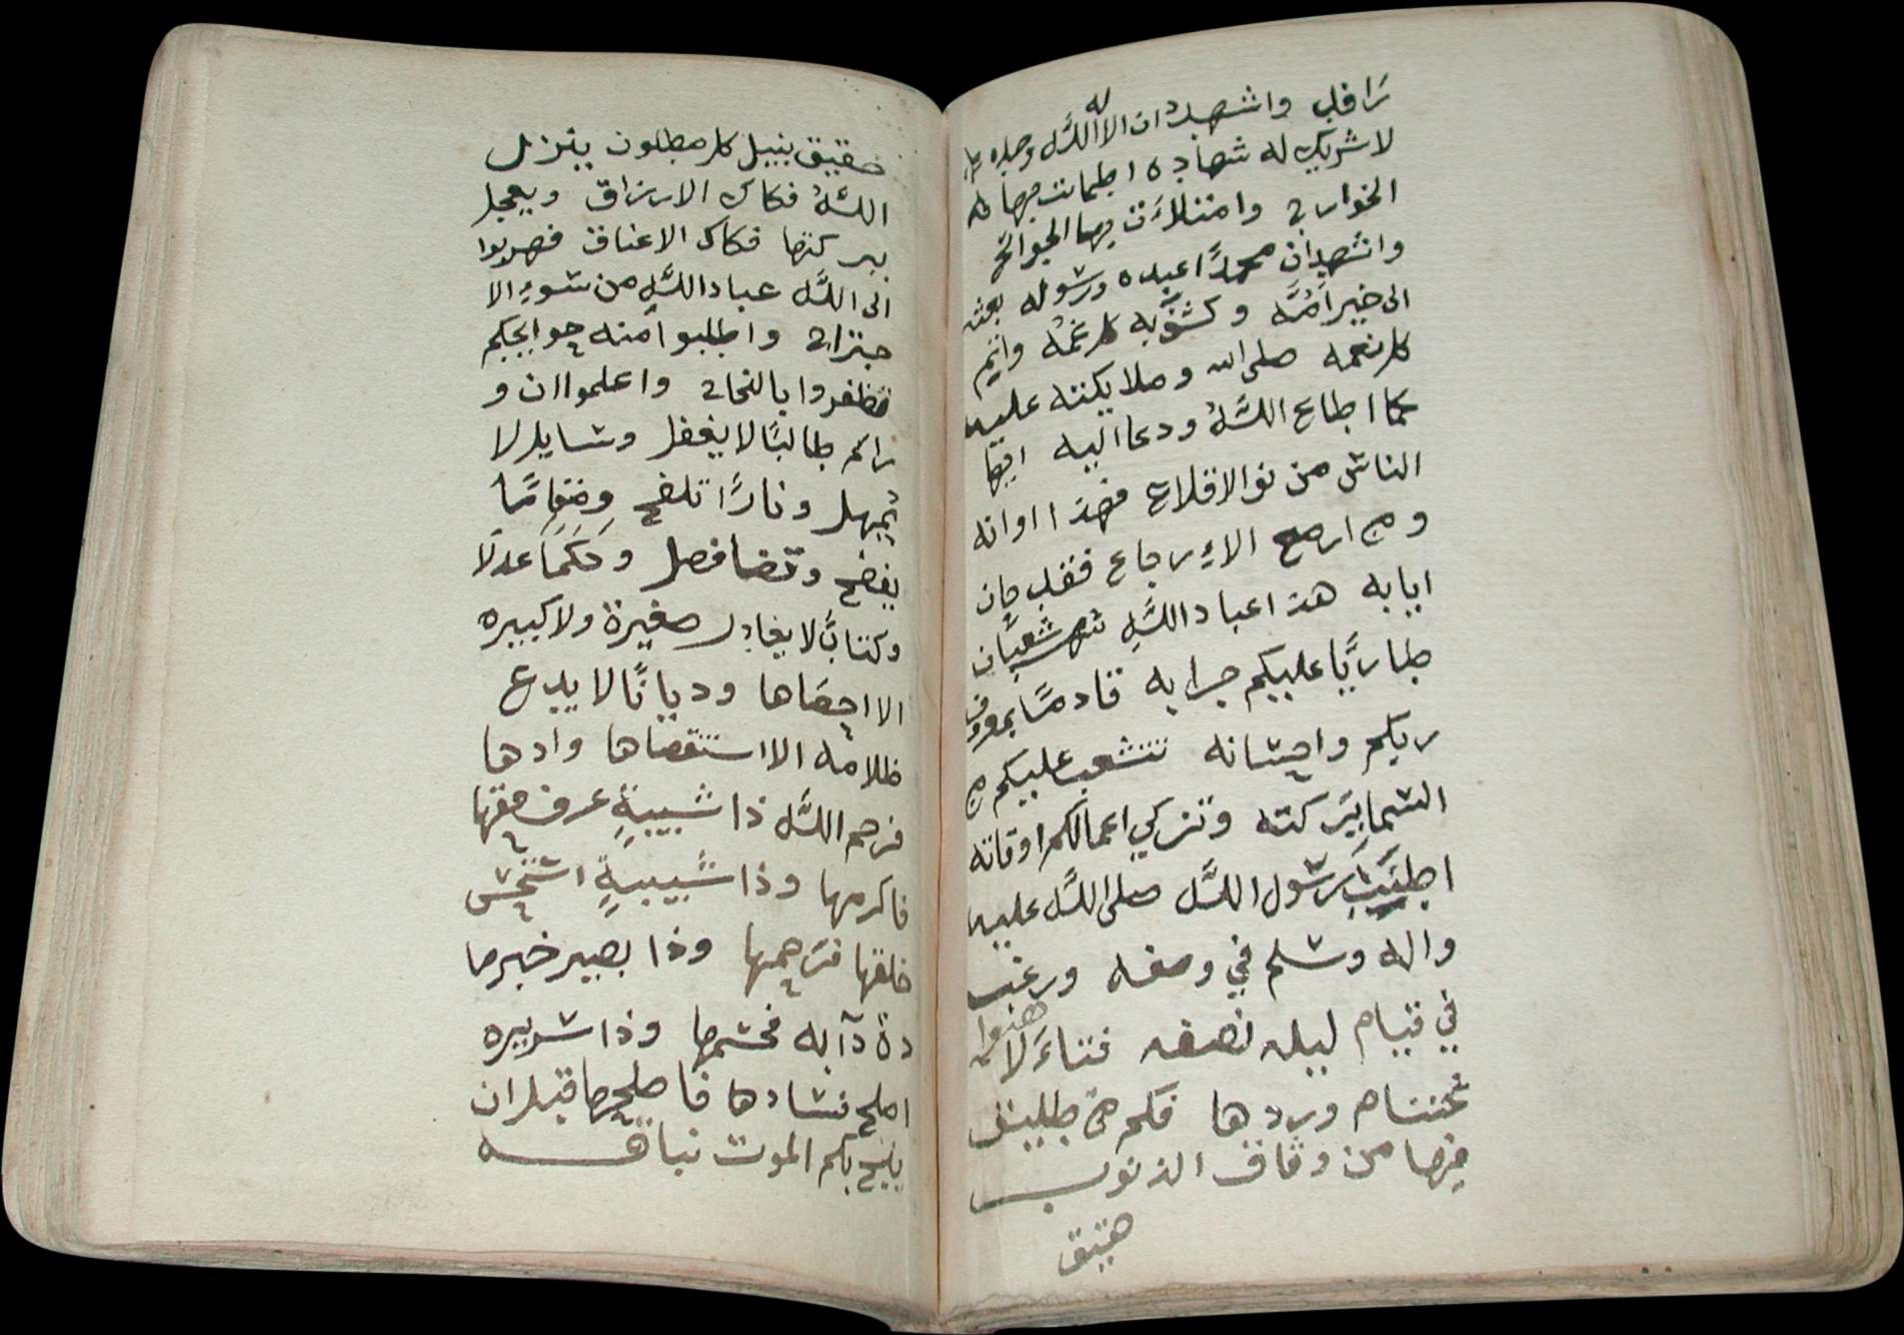 رافل واشهد ان لا اله الا الله وحده
لا شريك له شهادة اطمانت بها
الخوارج وامتلات بها الجوائح
واشهد ان محمدا عبده ورسوله بعثه
الى خير امه وكشف به كل غمه واتم
كل نعمه صلى الله وملايكته عليه
كما اطاع الله ودعا اليه ايها
الناس من نو الاقلاع فهذا اوانه
ومن ازمع الارجاع فقد حان
ايابه هذا عباد الله شهر شعبان
طاريا عليكم جرابه قادما بمعروف
ربكم واحسانه تتشعب عليكم من
السما بركته وتزكي اعمالكم اوقاته
اطنب رسول الله صلى الله عليه
واله وسلم في وصفه ورغب
في قيام ليله نصفه فتاهبوا لا
غتنام وردها فكم من طليق
فيها من وثاق الذنوب
حقيق
حقيق بنيل كل مطلوب ينزل
الله فكاك الارزاق ويعجل
ببركتها فكاك الاعناق فهربوا
الى الله عباد الله من سوء الا
جتراح واطلبوا منه حوايجكم
تظفروا بالنجاح واعلموا ان و
راكم طالبا لا يغفل وسايلا لا
يمهل ونارا تلفح ومقاما
يفضح وقضا فصل وحكما عدلا
وكتابا لا يغادر صغيرة ولا كبيره
الا احصاها وديانا لا يدع
ظلامه الا استقصاها وادها
فرحم الله ذا شيبة عرف حقها
فاكرمها وذا شبيبة استحسن
خلقها فرحمها وذا بصير خبر ما
دة دآبه فحسمها وذا سريره
املح فسادها فاصلحها قبل ان
ينيح بكم الموت نياقه